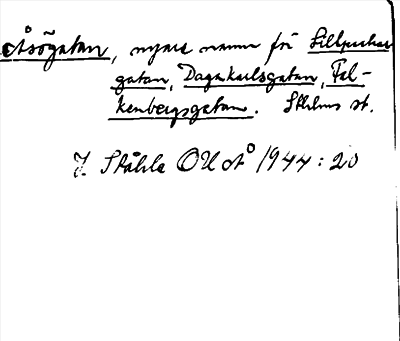 Åsögatan, nyare namn för Lillpachas
gatan, Dagakarlsgatan, Fal-
kenbergsgatan. Sthlms st.
J. Ståhle OUÅ 1944:20